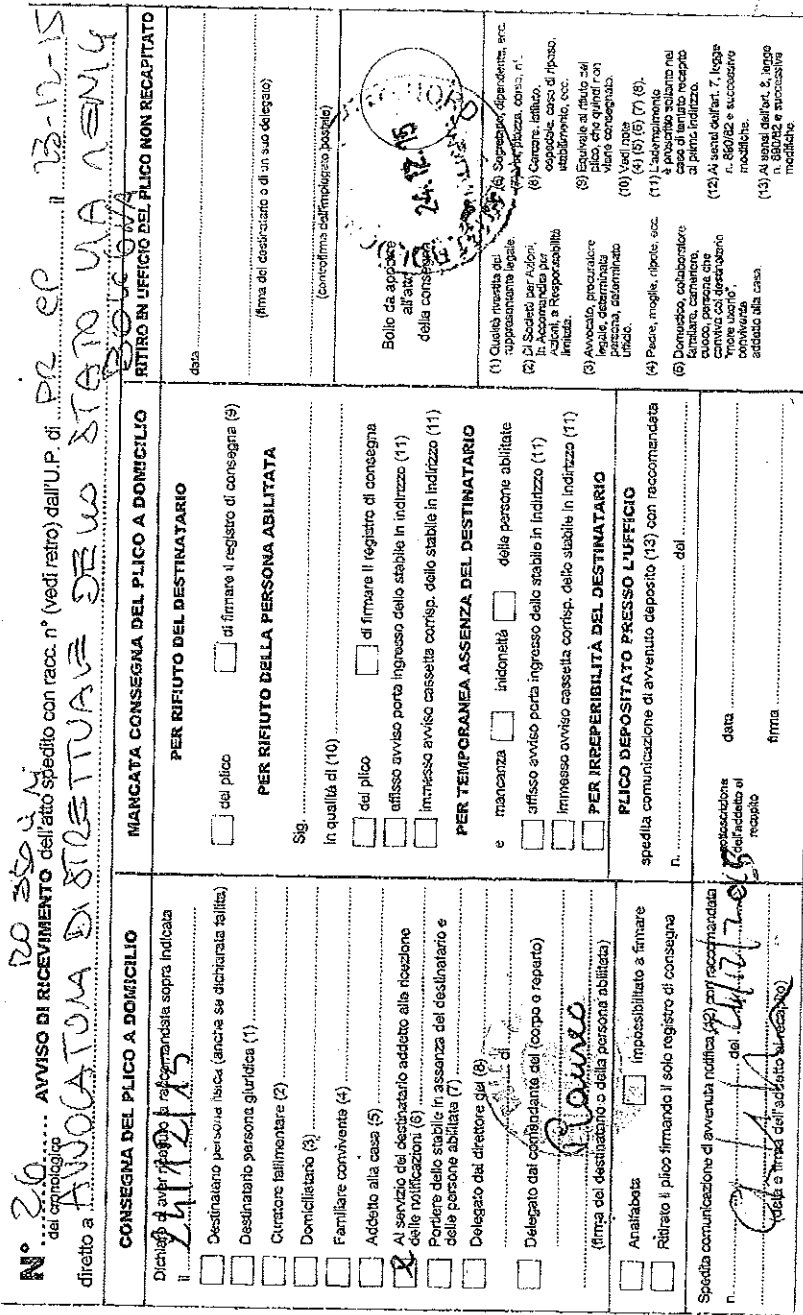 N° 26 AVVISO DI RICEVIMENTO dell'atto spedito con racc. n° (vedi retro) dall'U.P. di PR CP il 23-12-15
del cronologico
diretto a AVVOCATURA DISTRETTUALE DELLO STATO VIA
BOLOGNA
CONSEGNA DEL PLICO A DOMICILIO
Dichiaro di aver ricevuto la raccomandata sopra indicata
il 24/12/15
Destinatario persona fisica (anche se dichiarata fallita)
Destinatario persona giuridica (1)
Curatore fallimentare (2)
Domiciliatario (3)
Familiare convivente (4)
Addetto alla casa (5)
Al servizio del destinatario addetto alla ricezione
delle notificazioni (6)
Portiere dello stabile in assenza del destinatario e
delle persone abilitate (7)
Delegato dal direttore del (8)
di
Delegato dal comandante del (corpo e reparto)
(firma del destinatario o della persona abilitata)
Analfabeta
impossibilitato a firmare
Ritirato il plico firmando il solo registro di consegna
Spedita comunicazione di avvenuta notifica (12) con raccomandata
n. del 24/12/2015
(data e firma dell'addetto al recapito)
MANCATA CONSEGNA DEL PLICO A DOMICILIO
PER RIFIUTO DEL DESTINATARIO
del plico
di firmare il registro di consegna (9)
PER RIFIUTO DELLA PERSONA ABILITATA
Sig.
In qualità di (10)
del plico
di firmare il registro di consegna
affisso avviso porta ingresso dello stabile in indirizzo (11)
immesso avviso cassetta corrisp. dello stabile in indirizzo (11)
PER TEMPORANEA ASSENZA DEL DESTINATARIO
e mancanza inidoneità delle persone abilitate
affisso avviso porta ingresso dello stabile in indirizzo (11)
immesso avviso cassetta corrisp. dello stabile in indirizzo (11)
PER IRREPERIBILITÀ DEL DESTINATARIO
PLICO DEPOSITATO PRESSO L'UFFICIO
spedita comunicazione di avvenuto deposito (13) con raccomandata
n. del
sottoscrizione
dell'addetto al
recapito
data
firma
RITIRO IN UFFICIO DEL PLICO NON RECAPITATO
data
(firma del destinatario o di un suo delegato)
(controfirma dell'impiegato postale)
Bollo da apporre
all'atto
della consegna
24.12.15
(1) Qualità rivestita dal
rappresentante legale.
(2) Di Società per Azioni,
in Accomandita per
Azioni, a Responsabilità
limitata.
(3) Avvocato, procuratore
legale, determinata
persona, determinato
ufficio.
(4) Padre, moglie, nipote, ecc.
(5) Domestico, collaboratore
familiare, cameriere,
cuoco, persona che
conviva col destinatario
"more uxorio",
convivente
addetto alla casa.
(6) Segretario, dipendente, ecc.
(7) Via, piazza, corso, n°.
(8) Carcere, istituto,
ospedale, casa di riposo,
stabilimento, ecc.
(9) Equivale al rifiuto del
plico, che quindi non
viene consegnato.
(10) Vedi note
(4) (5) (6) (7) (8).
(11) L'adempimento
è prescritto soltanto nel
caso di tentato recapito
al primo indirizzo.
(12) Ai sensi dell'art. 7, legge
n. 890/82 e successive
modifiche.
(13) Ai sensi dell'art. 8, legge
n. 890/82 e successive
modifiche.